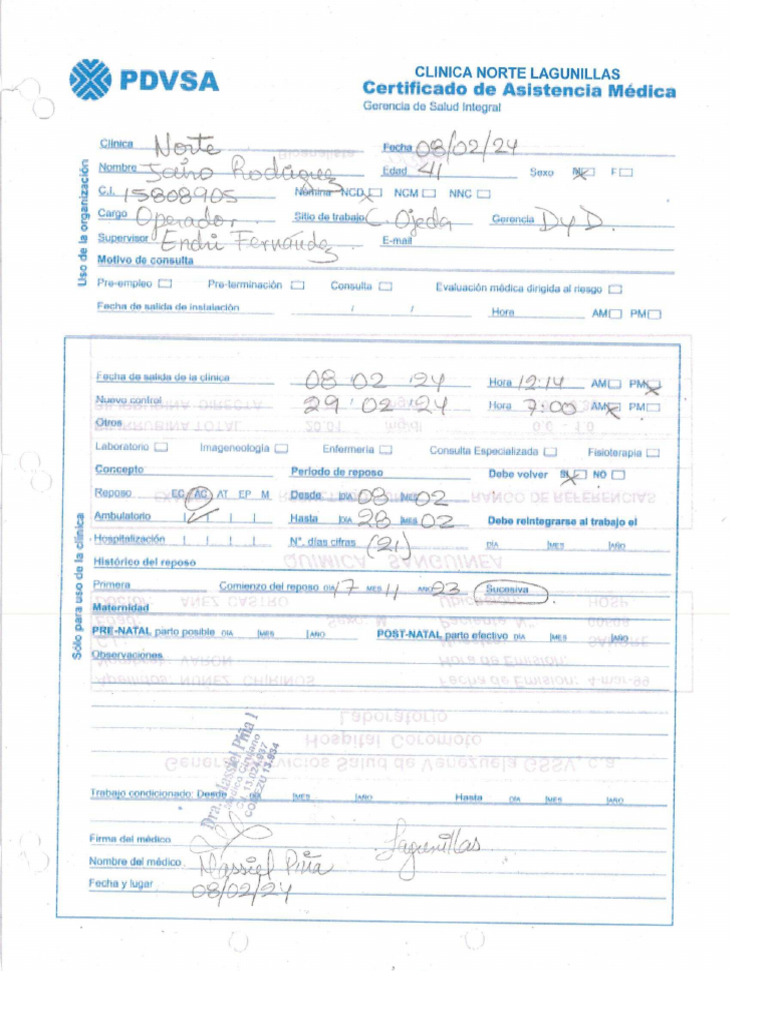 PDVSA
CLINICA NORTE LAGUNILLAS
Certificado de Asistencia Médica
Gerencia de Salud Integral
Uso de la organización
Clínica Norte Fecha 08/02/24
Nombre Jairo Rodríguez Edad 41 Sexo M F
C.I. 15808905 Nómina NCD NCM NNC
Cargo Operador Sitio de trabajo C. Ojeda Gerencia DyD.
Supervisor Endri Fernández E-mail
Motivo de consulta
Pre-empleo Pre-terminación Consulta Evaluación médica dirigida al riesgo
Fecha de salida de instalación / / Hora AM PM
Sólo para uso de la clínica
Fecha de salida de la clínica 08 02 '24 Hora 12:14 AM PM
Nuevo control 29 02 '24 Hora 7:00 AM PM
Otros
Laboratorio Imageneología Enfermería Consulta Especializada Fisioterapia
Concepto Período de reposo Debe volver SI NO
Reposo EC AC AT EP M Desde DIA 08 MES 02
Ambulatorio Hasta DIA 28 MES 02 Debe reintegrarse al trabajo el
Hospitalización N°. días cifras (21) DIA MES AÑO
Histórico del reposo
Primera Comienzo del reposo DIA 17 MES 11 AÑO 23 Sucesiva
Maternidad
PRE-NATAL parto posible DIA MES AÑO POST-NATAL parto efectivo DIA MES AÑO
Observaciones
Dra. Massiel Piña
Médico Cirujano
C.I. 13.024.937
COMEZU 13.934
Trabajo condicionado: Desde DIA MES AÑO Hasta DIA MES AÑO
Firma del médico
Nombre del médico Massiel Piña Lagunillas
Fecha y lugar 08/02/24